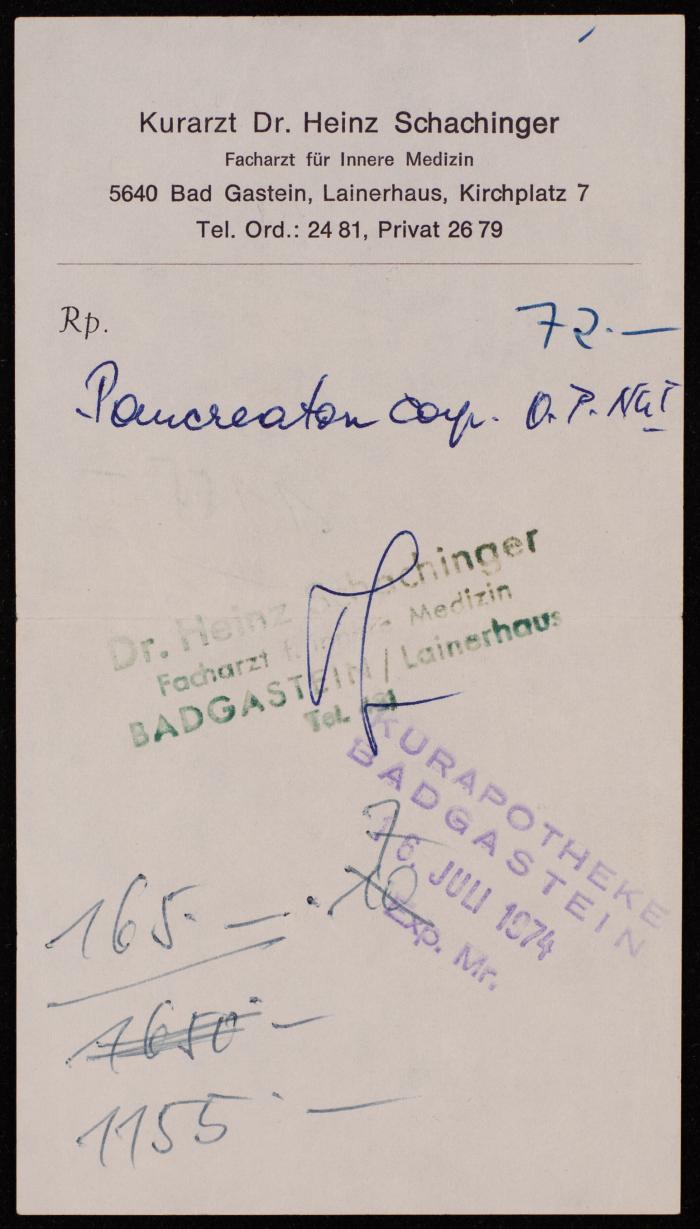 Kurarzt Dr. Heinz Schachinger
Facharzt für Innere Medizin
5640 Bad Gastein, Lainerhaus, Kirchplatz 7
Tel. Ord.: 24 81, Privat 26 79
Rp.
72.—
Pancreaton comp. O.P. No I
Dr. Heinz Schachinger
Facharzt f. Innere Medizin
BADGASTEIN / Lainerhaus
Tel.
KURAPOTHEKE
BADGASTEIN
16. JULI 1974
Exp. Mr.
7
165.— . 10
1650.—
1155.—